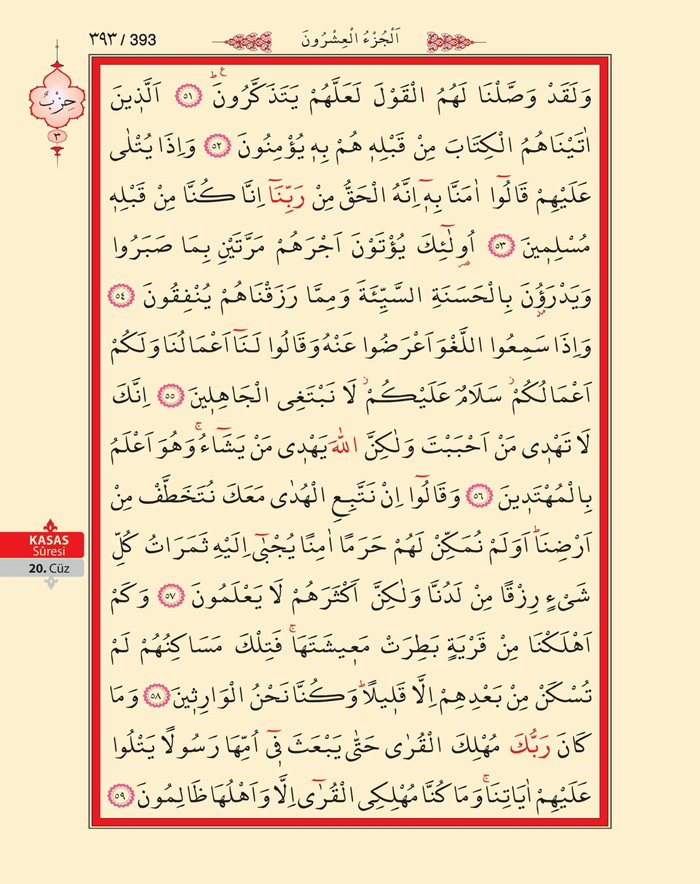 ٣٩٣ / 393
اَلْجُزْءُ الْعِشْرُونَ
حِزْبٌ
٣
وَلَقَدْ وَصَّلْنَا لَهُمُ الْقَوْلَ لَعَلَّهُمْ يَتَذَكَّرُونَۜ ﴿٥١﴾ اَلَّذٖينَ
اٰتَيْنَاهُمُ الْكِتَابَ مِنْ قَبْلِهٖ هُمْ بِهٖ يُؤْمِنُونَ ﴿٥٢﴾ وَاِذَا يُتْلٰى
عَلَيْهِمْ قَالُٓوا اٰمَنَّا بِهٖٓ اِنَّهُ الْحَقُّ مِنْ رَبِّنَٓا اِنَّا كُنَّا مِنْ قَبْلِهٖ
مُسْلِمٖينَ ﴿٥٣﴾ اُو۬لٰٓئِكَ يُؤْتَوْنَ اَجْرَهُمْ مَرَّتَيْنِ بِمَا صَبَرُوا
وَيَدْرَؤُ۫نَ بِالْحَسَنَةِ السَّيِّئَةَ وَمِمَّا رَزَقْنَاهُمْ يُنْفِقُونَ ﴿٥٤﴾
وَاِذَا سَمِعُوا اللَّغْوَ اَعْرَضُوا عَنْهُ وَقَالُوا لَنَٓا اَعْمَالُنَا وَلَكُمْ
اَعْمَالُكُمْۘ سَلَامٌ عَلَيْكُمْۘ لَا نَبْتَغِي الْجَاهِلٖينَ ﴿٥٥﴾ اِنَّكَ
لَا تَهْدٖي مَنْ اَحْبَبْتَ وَلٰكِنَّ اللّٰهَ يَهْدٖي مَنْ يَشَٓاءُۚ وَهُوَ اَعْلَمُ
بِالْمُهْتَدٖينَ ﴿٥٦﴾ وَقَالُٓوا اِنْ نَتَّبِعِ الْهُدٰى مَعَكَ نُتَخَطَّفْ مِنْ
اَرْضِنَاۜ اَوَلَمْ نُمَكِّنْ لَهُمْ حَرَمًا اٰمِنًا يُجْبٰٓى اِلَيْهِ ثَمَرَاتُ كُلِّ
شَيْءٍ رِزْقًا مِنْ لَدُنَّا وَلٰكِنَّ اَكْثَرَهُمْ لَا يَعْلَمُونَ ﴿٥٧﴾ وَكَمْ
اَهْلَكْنَا مِنْ قَرْيَةٍ بَطِرَتْ مَعٖيشَتَهَاۚ فَتِلْكَ مَسَاكِنُهُمْ لَمْ
تُسْكَنْ مِنْ بَعْدِهِمْ اِلَّا قَلٖيلًاۜ وَكُنَّا نَحْنُ الْوَارِثٖينَ ﴿٥٨﴾ وَمَا
كَانَ رَبُّكَ مُهْلِكَ الْقُرٰى حَتّٰى يَبْعَثَ فٖٓي اُمِّهَا رَسُولًا يَتْلُوا
عَلَيْهِمْ اٰيَاتِنَاۚ وَمَا كُنَّا مُهْلِكِي الْقُرٰٓى اِلَّا وَاَهْلُهَا ظَالِمُونَ ﴿٥٩﴾
KASAS
Sûresi
20. Cüz